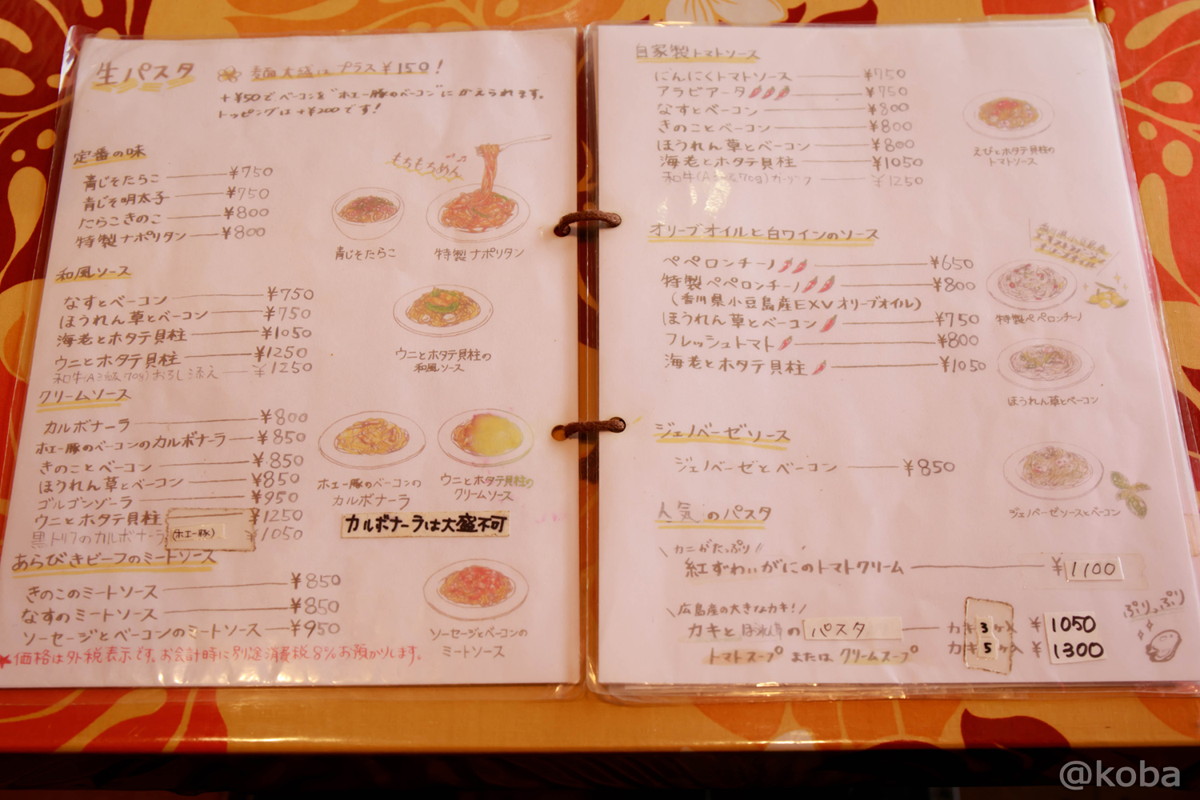 生パスタ
麺大盛はプラス¥150!
+¥50でベーコンを"ホエー豚のベーコン"にかえられます。
トッピングは+¥200です!
定番の味
青じそたらこ ¥750
青じそ明太子 ¥750
たらこきのこ ¥800
特製ナポリタン ¥800
もちもちめん♫
青じそたらこ
特製ナポリタン
和風ソース
なすとベーコン ¥750
ほうれん草とベーコン ¥750
海老とホタテ貝柱 ¥1050
ウニとホタテ貝柱 ¥1250
和牛(A3級70g)おろし添え ¥1250
ウニとホタテ貝柱の
和風ソース
クリームソース
カルボナーラ ¥800
ホエー豚のベーコンのカルボナーラ ¥850
きのことベーコン ¥850
ほうれん草とベーコン ¥850
ゴルゴンゾーラ ¥950
ウニとホタテ貝柱 ¥1250
黒トリフのカルボナーラ (ホエー豚) ¥1050
ホエー豚のベーコンの
カルボナーラ
ウニとホタテ貝柱の
クリームソース
カルボナーラは大盛不可
あらびきビーフのミートソース
きのこのミートソース ¥850
なすのミートソース ¥850
ソーセージとベーコンのミートソース ¥950
ソーセージとベーコンの
ミートソース
★価格は外税表示です。お会計時に別途消費税8%お預かりします。
自家製トマトソース
にんにくトマトソース ¥750
アラビアータ ¥750
なすとベーコン ¥800
きのことベーコン ¥800
ほうれん草とベーコン ¥800
海老とホタテ貝柱 ¥1050
和牛 ¥1250
えびとホタテ貝柱の
トマトソース
オリーブオイルと白ワインのソース
ペペロンチーノ ¥650
特製ペペロンチーノ ¥800
(香川県小豆島産EXVオリーブオイル)
ほうれん草とベーコン ¥750
フレッシュトマト ¥800
海老とホタテ貝柱 ¥1050
特製ペペロンチーノ
ほうれん草とベーコン
ジェノベーゼソース
ジェノベーゼとベーコン ¥850
ジェノベーゼソースとベーコン
人気のパスタ
\カニがたっぷり/
紅ずわいがにのトマトクリーム ¥1100
\広島産の大きなカキ!/
カキとほうれん草のパスタ カキ3ケ入 ¥1050
トマトスープ または クリームスープ カキ5ケ入 ¥1300
ぷりっぷり
@koba